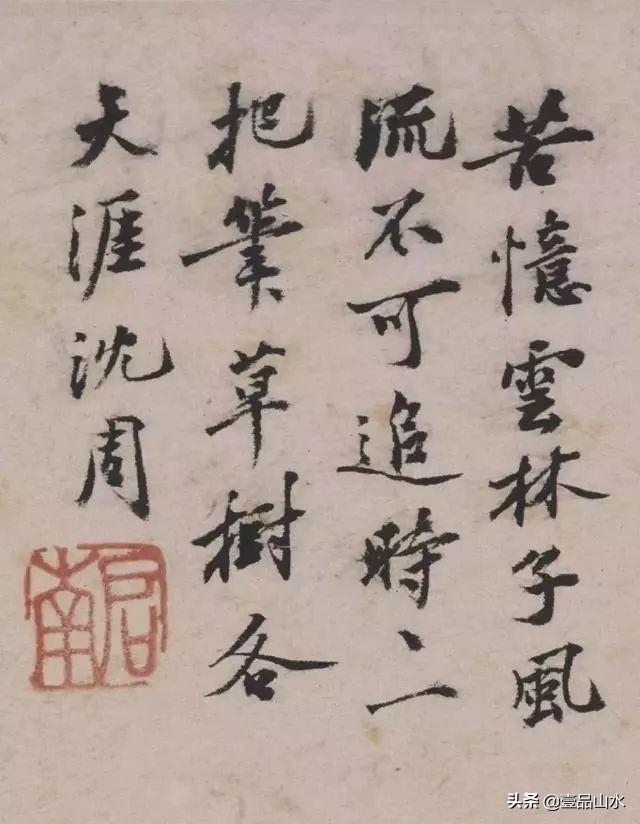 苦憶雲林子風
流不可追時〻一
把筆草樹各
天涯沈周
启南
头条 @壹品山水